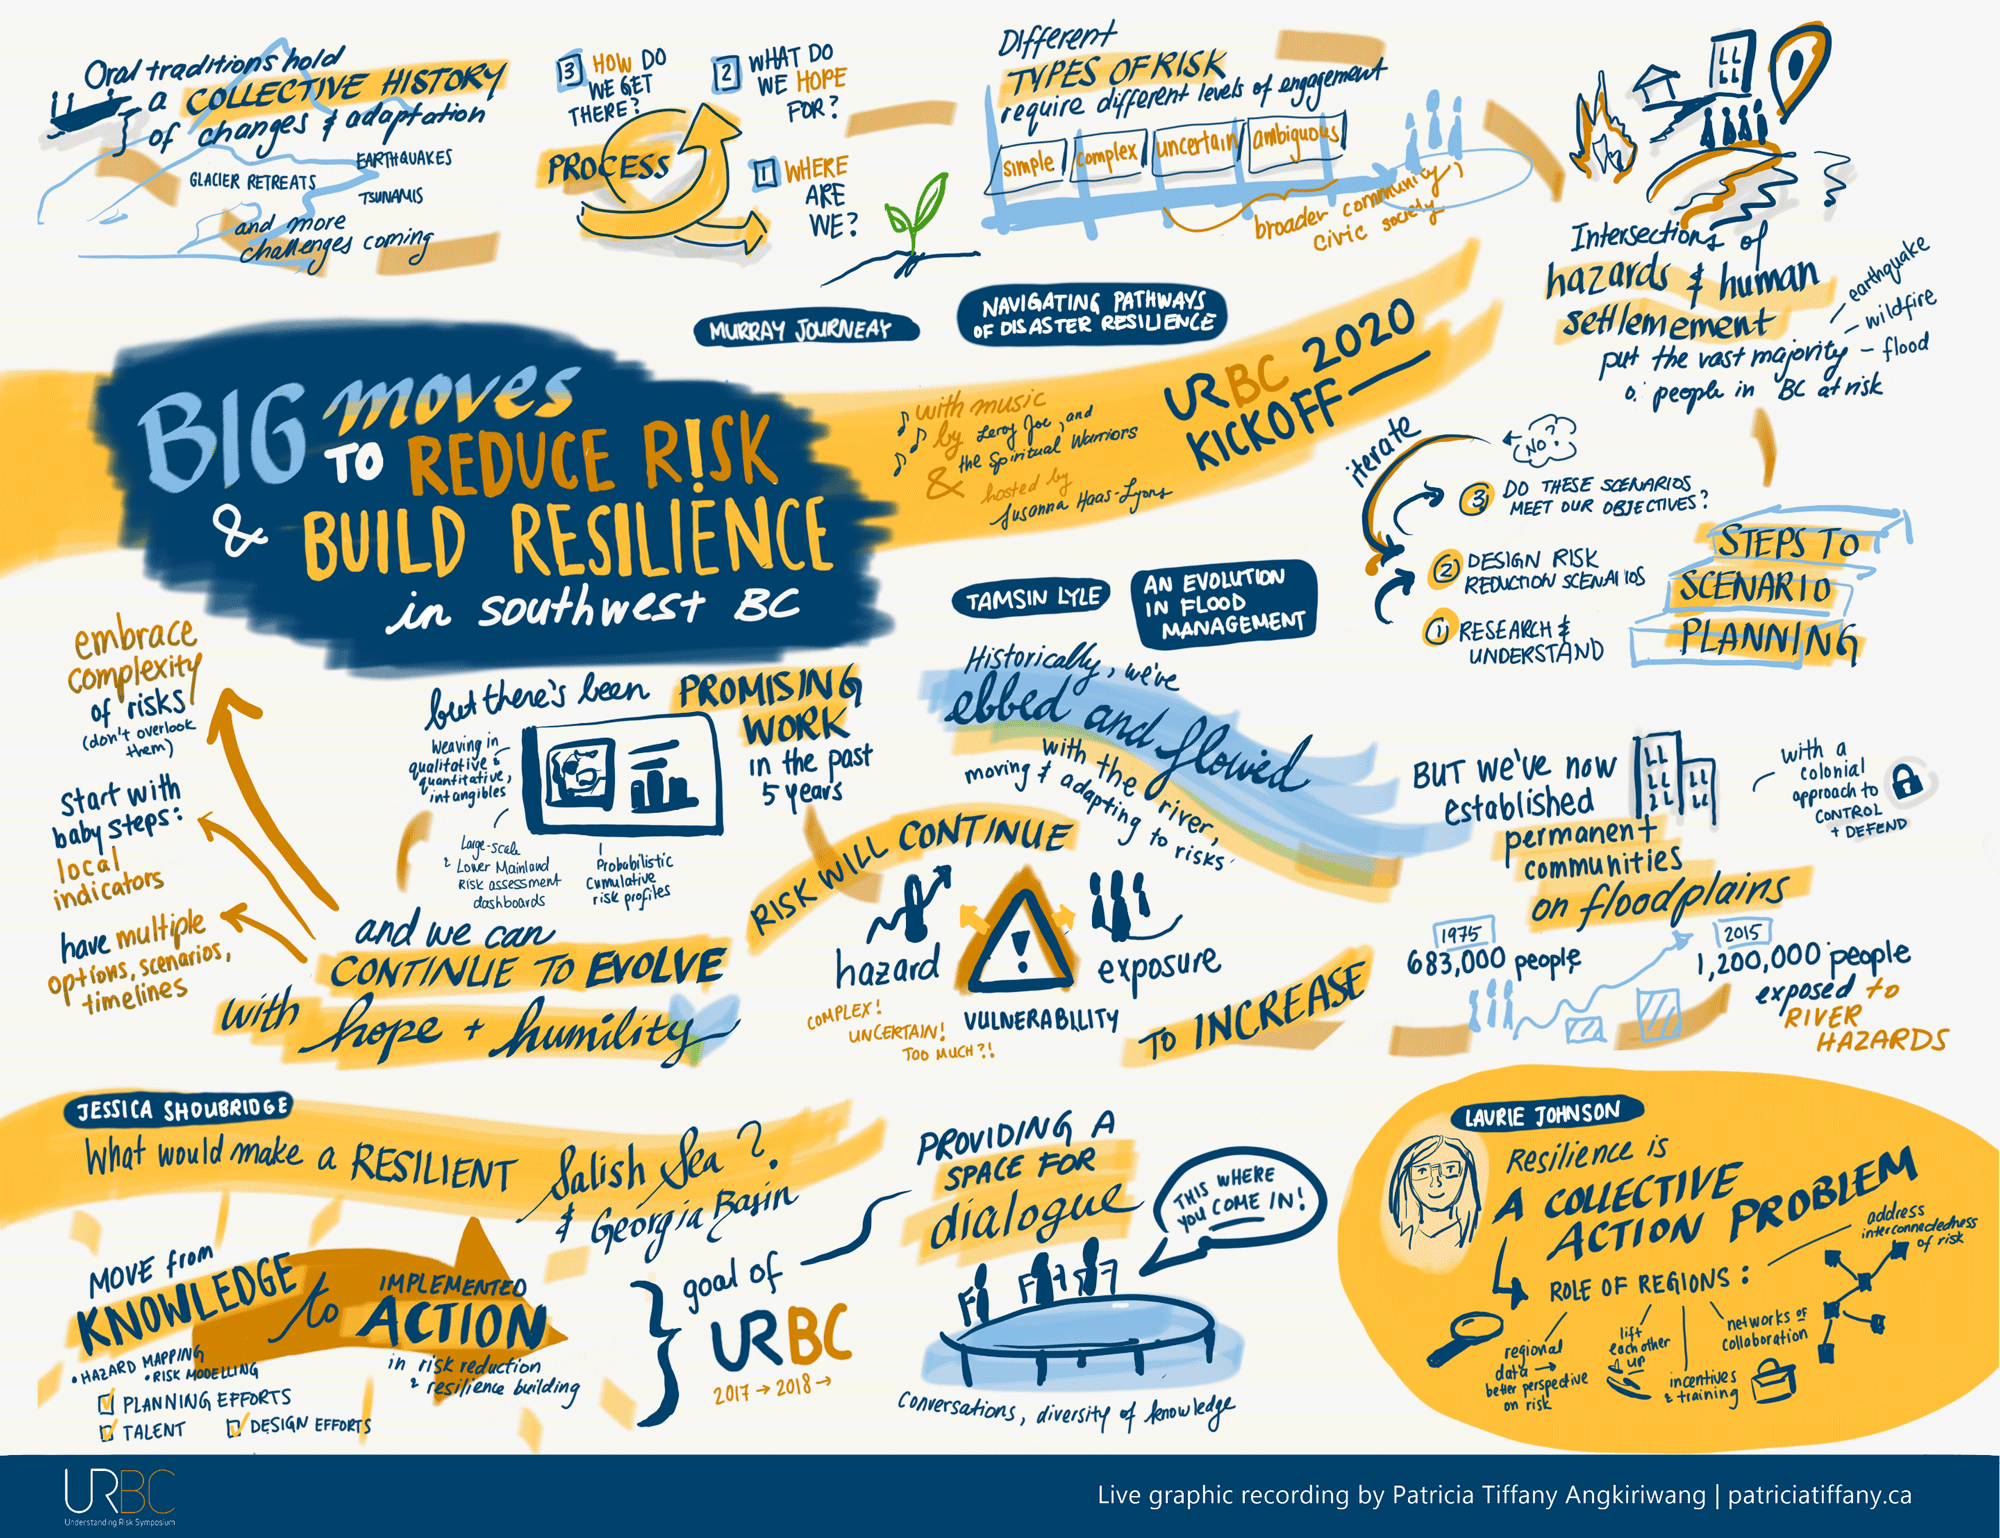 Oral traditions hold
a COLLECTIVE HISTORY
of changes & adaptation
EARTHQUAKES
GLACIER RETREATS
TSUNAMIS
and more
challenges coming
PROCESS
3 HOW DO
WE GET
THERE?
2 WHAT DO
WE HOPE
FOR?
1 WHERE
ARE
WE?
Different
TYPES OF RISK
require different levels of engagement
simple
complex
uncertain
ambiguous
broader community,
civic society
Intersections of
hazards & human
settlemement
put the vast majority
o. people in BC at risk
- earthquake
- wildfire
- flood
MURRAY JOURNEAY
NAVIGATING PATHWAYS
OF DISASTER RESILIENCE
BIG moves
TO REDUCE RISK
& BUILD RESILIENCE
in southwest BC
with music
by Leroy Joe, and
the Spiritual Warriors
& hosted by
Susanna Haas-Lyons
URBC 2020
KICKOFF
iterate
NO?
3 DO THESE SCENARIOS
MEET OUR OBJECTIVES?
2 DESIGN RISK
REDUCTION SCENARIOS
1 RESEARCH &
UNDERSTAND
STEPS TO
SCENARIO
PLANNING
embrace
complexity
of risks
(don't overlook
them)
start with
baby steps:
local
indicators
have multiple
options, scenarios,
timelines
but there's been PROMISING
WORK
in the past
5 years
Weaving in
qualitative &
quantitative,
intangibles
Large-scale
& Lower Mainland
Risk assessment
dashboards
Probabilistic
Cumulative
risk profiles
and we can
CONTINUE TO EVOLVE
with hope + humility
TAMSIN LYLE
AN EVOLUTION
IN FLOOD
MANAGEMENT
Historically, we've
ebbed and flowed
with the river,
moving & adapting to risks
RISK WILL CONTINUE
hazard
exposure
VULNERABILITY
COMPLEX!
UNCERTAIN!
TOO MUCH?!
TO INCREASE
BUT we've now
established
permanent
communities
on floodplains
with a
colonial
approach to
CONTROL
+ DEFEND
1975
683,000 people
2015
1,200,000 people
exposed to
RIVER
HAZARDS
JESSICA SHOUBRIDGE
What would make a RESILIENT Salish Sea?
& Georgia Basin
MOVE from
KNOWLEDGE
to
IMPLEMENTED
ACTION
in risk reduction
& resilience building
• HAZARD MAPPING
• RISK MODELLING
PLANNING EFFORTS
TALENT
DESIGN EFFORTS
goal of
URBC
2017 → 2018 →
PROVIDING A
SPACE FOR
dialogue
THIS WHERE
YOU COME IN!
Conversations, diversity of knowledge
LAURIE JOHNSON
Resilience is
A COLLECTIVE
ACTION PROBLEM
ROLE OF REGIONS:
address
interconnectedness
of risk
regional
data →
better perspective
on risk
lift
each other
up
incentives
& training
networks of
collaboration
URBC
Understanding Risk Symposium
Live graphic recording by Patricia Tiffany Angkiriwang | patriciatiffany.ca